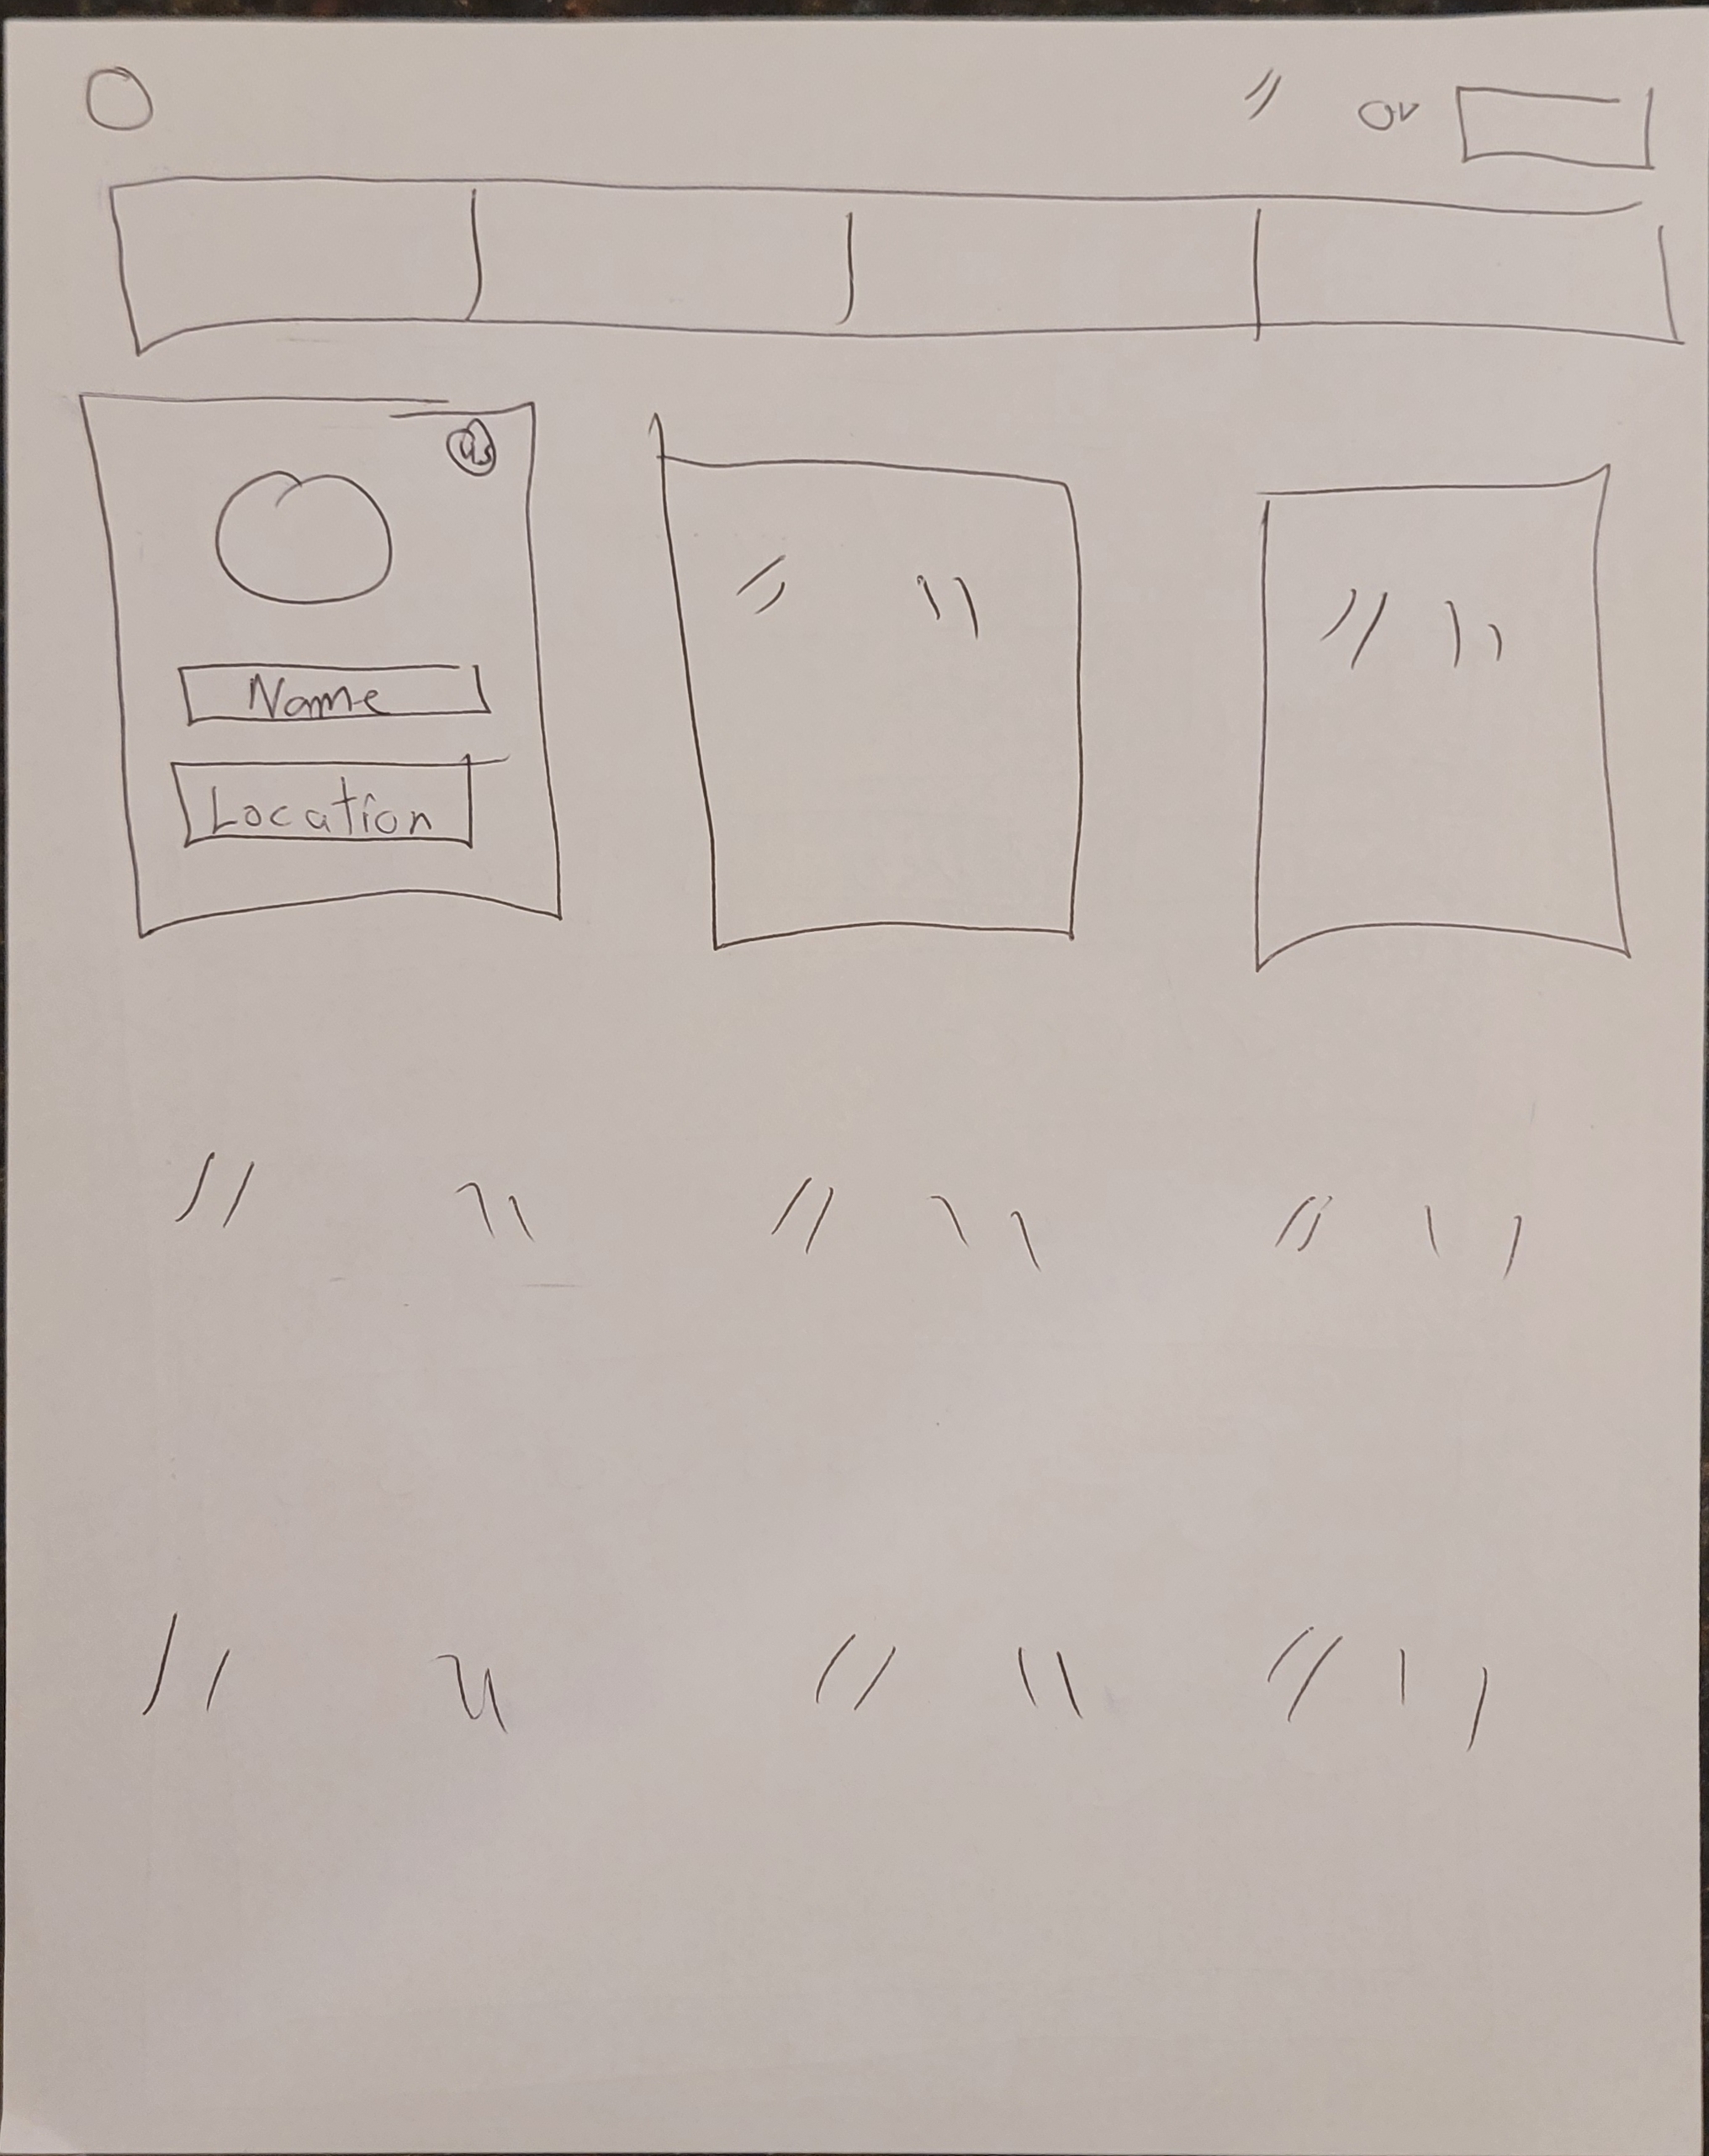 or
Name
Location